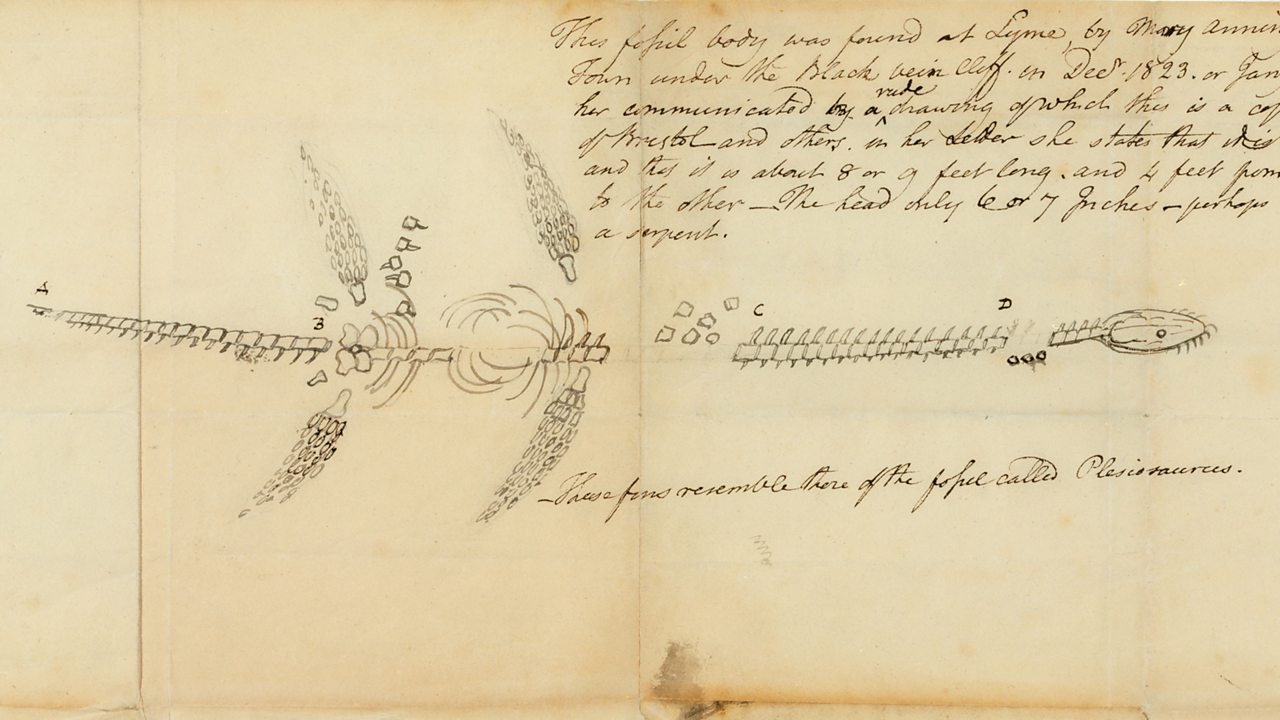 This fossil body was found at Lyme, by Mary Annin
Town under the Black vein Cliff. in Decr. 1823. or Jan
rude
her communicated by a drawing of which this is a co
of Bristol and others. in her Letter she states that
and that it is about 8 or 9 feet long. and 4 feet from
to the other — The head only 6 or 7 Inches — perhaps
a serpent.
A
B
C
D
— These fins resemble those of the fossil called Plesiosaurus.